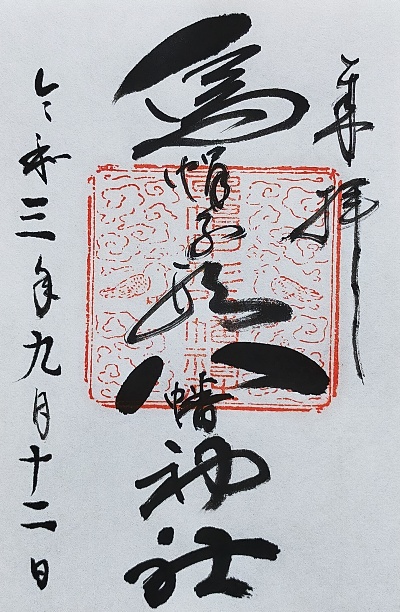 奉拝
烏帽子形八幡神社
令和三年九月十二日